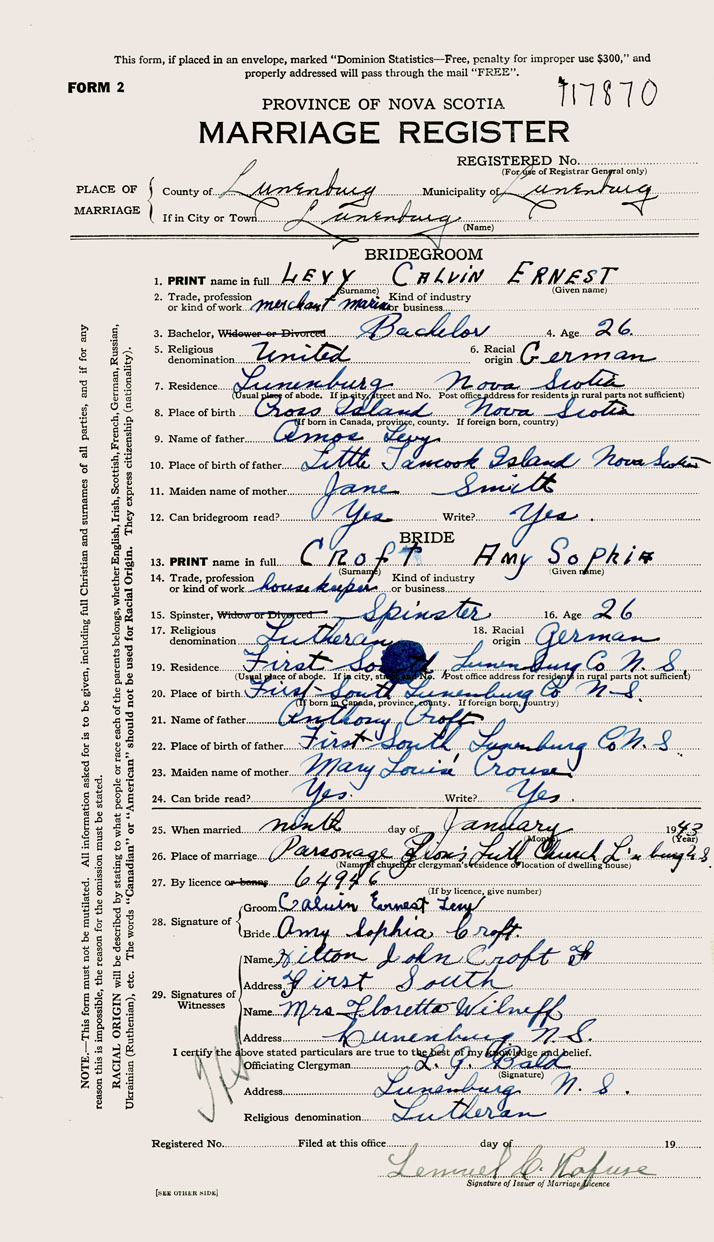 This form, if placed in an envelope, marked "Dominion Statistics—Free, penalty for improper use $300," and
properly addressed will pass through the mail "FREE".
FORM 2
717870
PROVINCE OF NOVA SCOTIA
MARRIAGE REGISTER
REGISTERED No.
(For use of Registrar General only)
PLACE OF MARRIAGE
County of Lunenburg Municipality of Lunenburg
If in City or Town Lunenburg
(Name)
BRIDEGROOM
1. PRINT name in full LEVY CALVIN ERNEST
(Surname) (Given name)
2. Trade, profession or kind of work merchant marine Kind of industry or business
3. Bachelor, Widower or Divorced Bachelor 4. Age 26
5. Religious denomination United 6. Racial origin German
7. Residence Lunenburg Nova Scotia
(Usual place of abode. If in city, street and No. Post office address for residents in rural parts not sufficient)
8. Place of birth Cross Island Nova Scotia
(If born in Canada, province, county. If foreign born, country)
9. Name of father Amos Levy
10. Place of birth of father Little Tancook Island Nova Scotia
11. Maiden name of mother Jane Smith
12. Can bridegroom read? Yes Write? Yes.
BRIDE
13. PRINT name in full CROFT AMY SOPHIA
(Surname) (Given name)
14. Trade, profession or kind of work housekeeper Kind of industry or business
15. Spinster, Widow or Divorced Spinster 16. Age 26
17. Religious denomination Lutheran 18. Racial origin German
19. Residence First South Lunenburg Co N. S.
(Usual place of abode. If in city, street and No. Post office address for residents in rural parts not sufficient)
20. Place of birth First South Lunenburg Co N. S.
(If born in Canada, province, county. If foreign born, country)
21. Name of father Anthony Croft
22. Place of birth of father First South Lunenburg Co N. S.
23. Maiden name of mother Mary Louise Crouse
24. Can bride read? Yes. Write? Yes.
25. When married ninth day of January 1943
(Month) (Year)
26. Place of marriage Parsonage Zion's Luth Church L'nburg N.S.
(Name of church or clergyman's residence or location of dwelling house)
27. By licence or banns 64946
(If by licence, give number)
28. Signature of
Groom Calvin Ernest Levy
Bride Amy Sophia Croft.
29. Signatures of Witnesses
Name Hilton John Croft
Address First South
Name Mrs Floretta Wilneff
Address Lunenburg N. S.
I certify the above stated particulars are true to the best of my knowledge and belief.
Officiating Clergyman L. G. Bald
(Signature)
Address Lunenburg N. S.
Religious denomination Lutheran
Registered No. Filed at this office day of 19
Lemuel C. Hafuse
Signature of Issuer of Marriage Licence
[SEE OTHER SIDE]
NOTE.—This form must not be mutilated. All information asked for is to be given, including full Christian and surnames of all parties, and if for any
reason this is impossible, the reason for the omission must be stated.
RACIAL ORIGIN will be described by stating to what people or race each of the parents belongs, whether English, Irish, Scottish, French, German, Russian,
Ukrainian (Ruthenian), etc. The words "Canadian" or "American" should not be used for Racial Origin. They express citizenship (nationality).